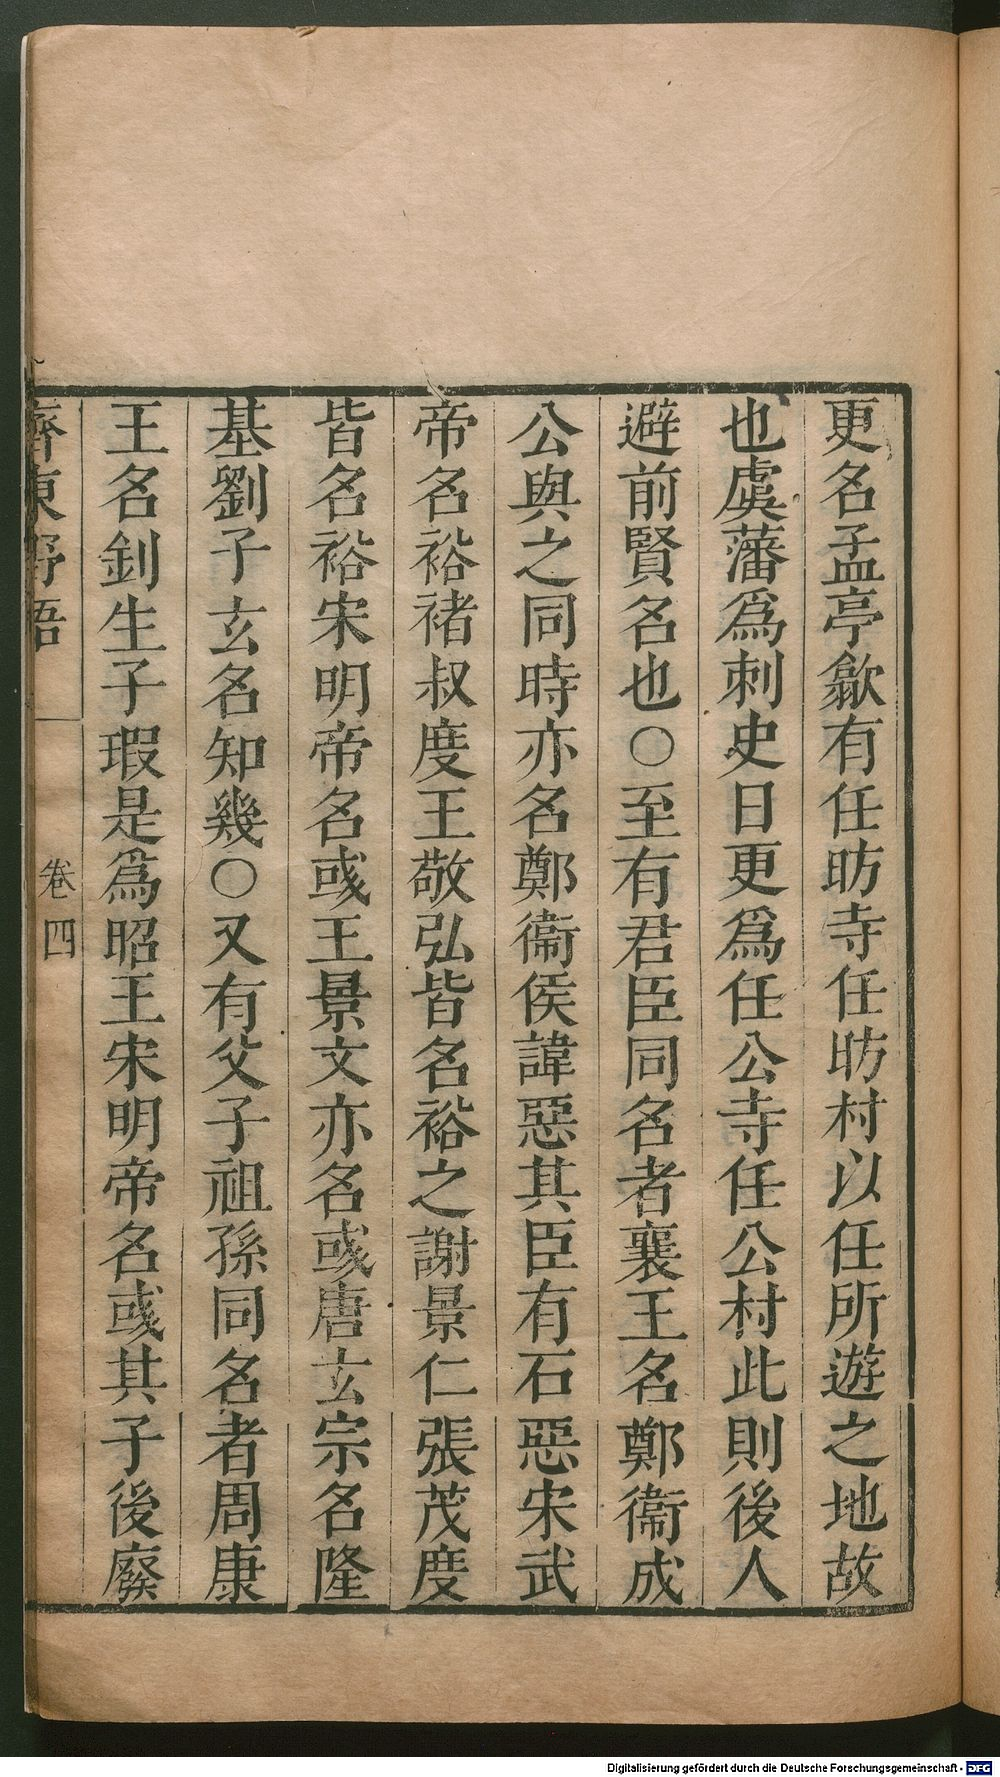 更名孟亭歙有任昉寺任昉村以任所遊之地故
也虞藩爲刺史曰更爲任公寺任公村此則後人
避前賢名也○至有君臣同名者襄王名鄭衞成
公與之同時亦名鄭衞侯諱惡其臣有石惡宋武
帝名裕褚叔度王敬弘皆名裕之謝景仁張茂度
皆名裕宋明帝名彧王景文亦名彧唐玄宗名隆
基劉子玄名知幾○又有父子祖孫同名者周康
王名釗生子瑕是爲昭王宋明帝名彧其子後廢
齊東野語
卷四
Digitalisierung gefördert durch die Deutsche Forschungsgemeinschaft - DFG